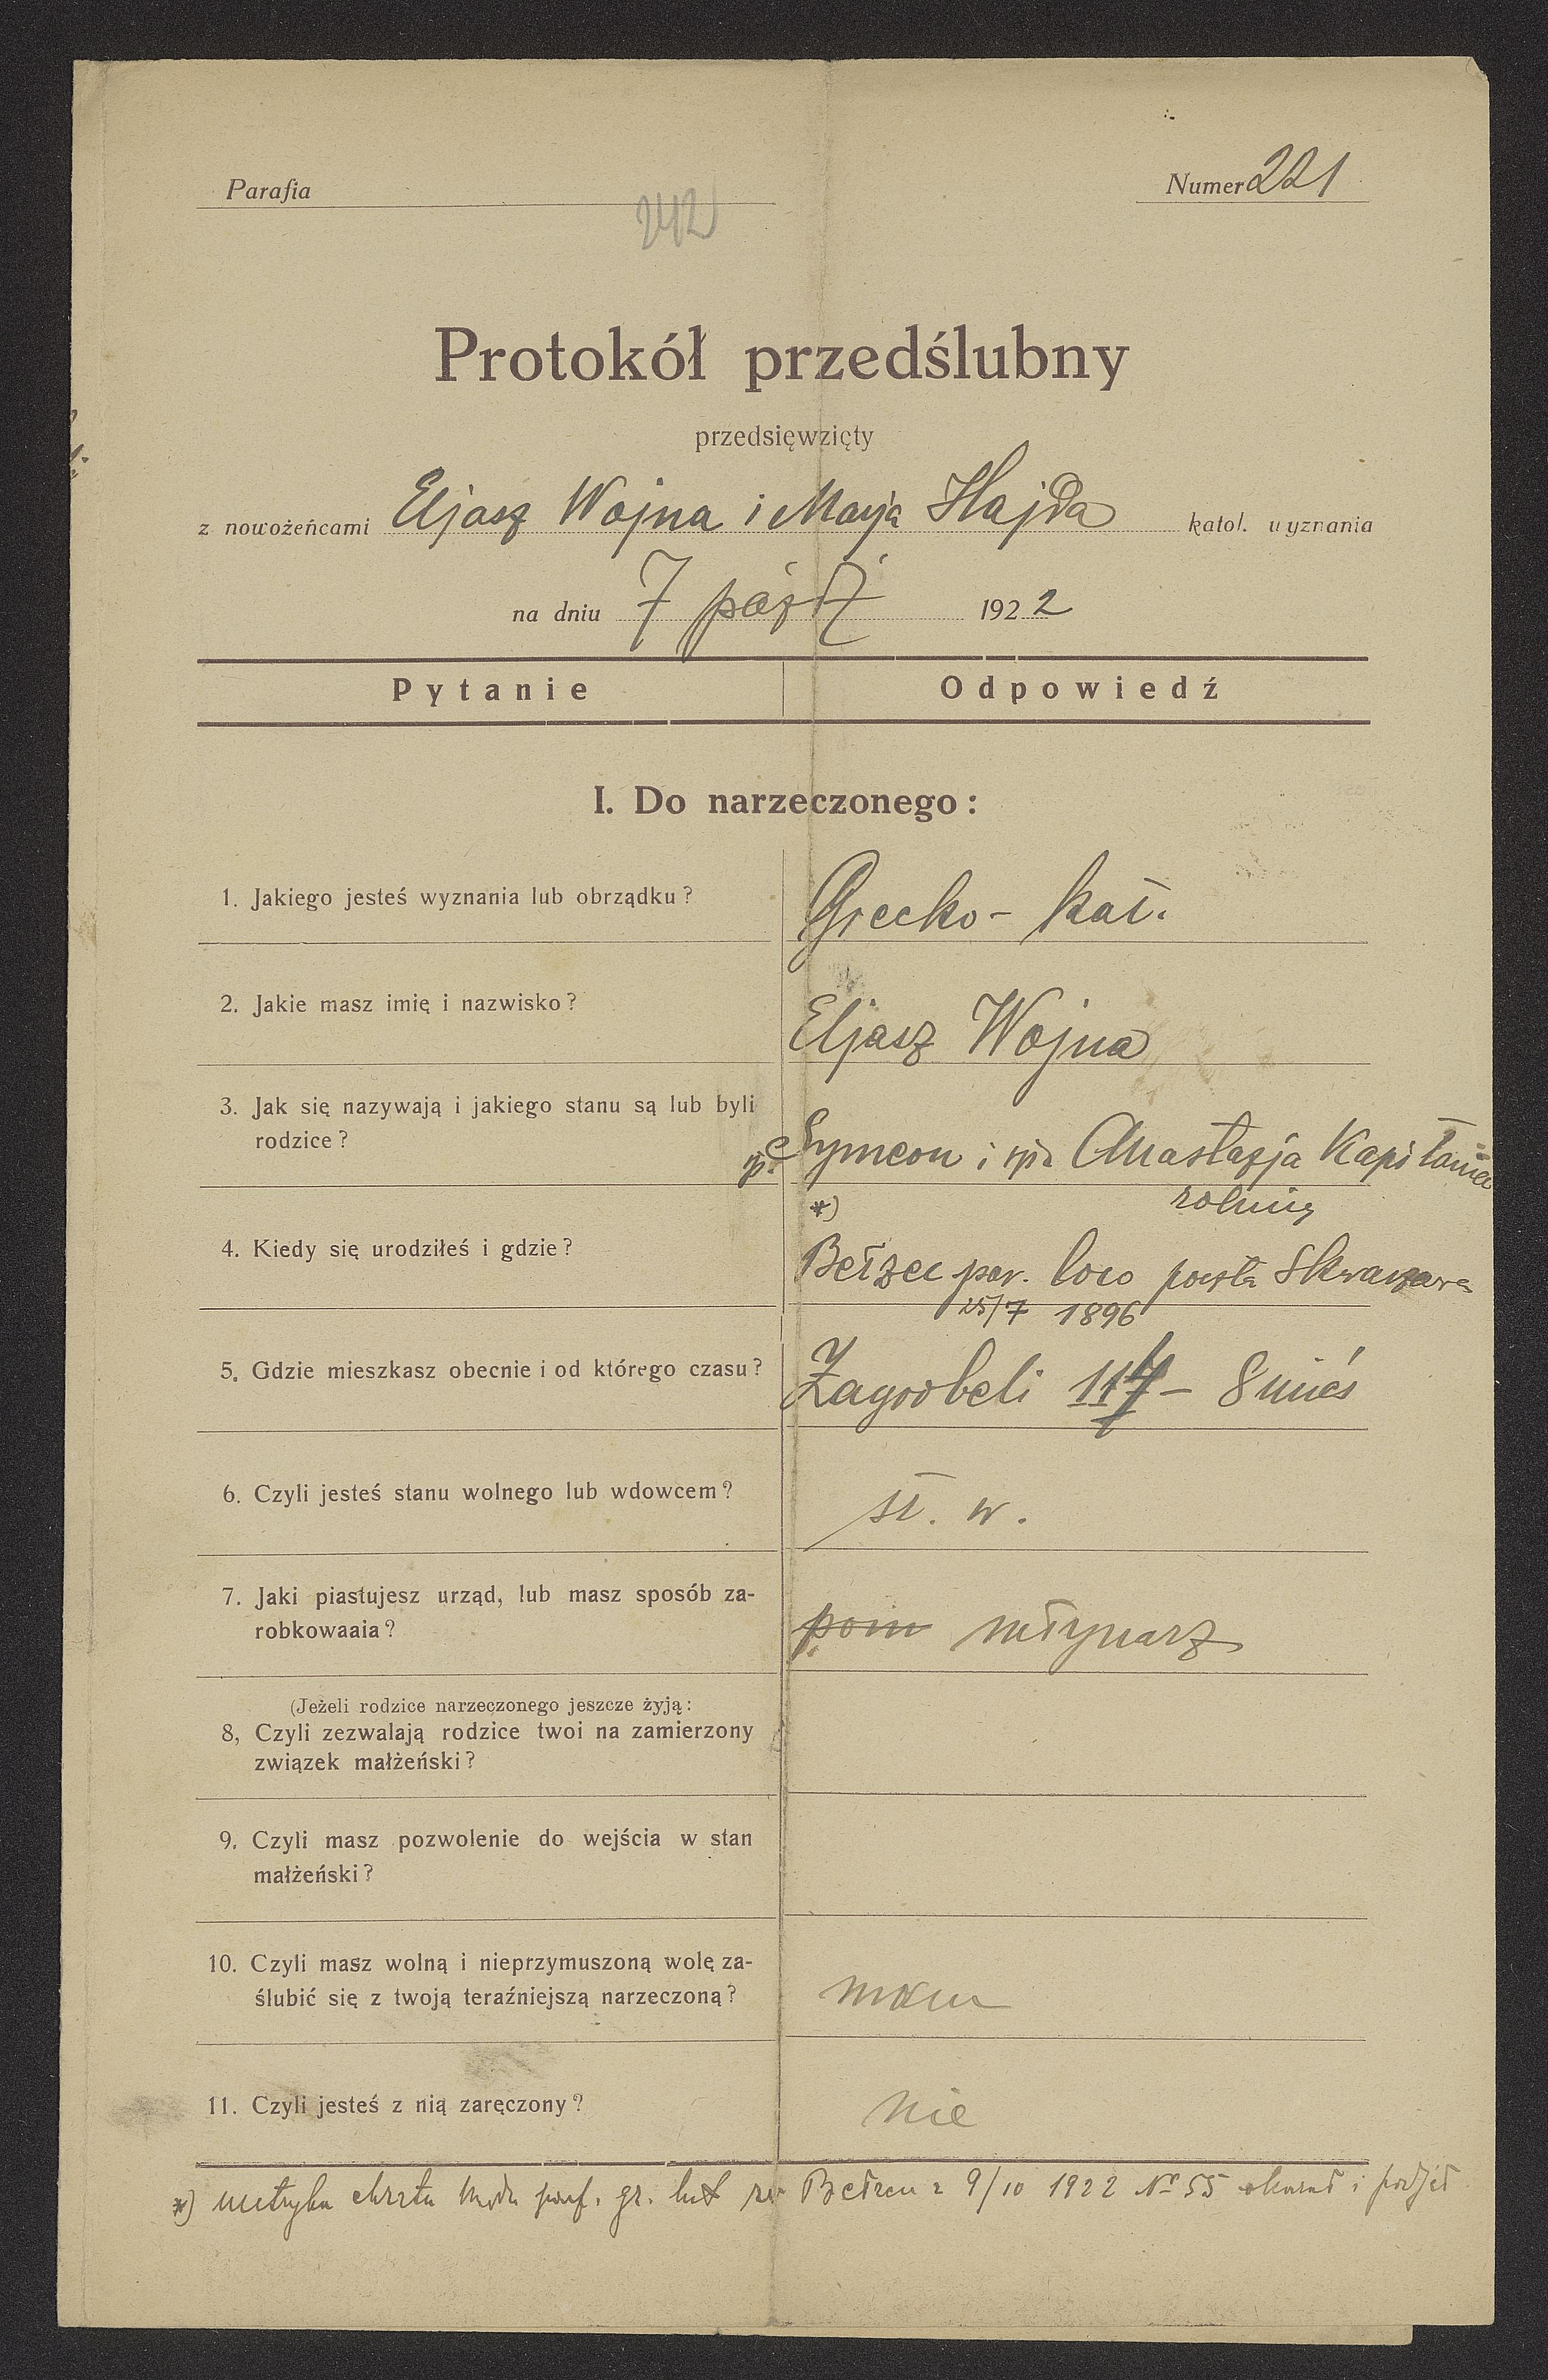 Parafia
Numer 221
242
Protokół przedślubny
przedsięwzięty
z nowożeńcami Eljasz Wojna i Marja Hajda katol. wyznania
na dniu 7 paźdź 1922
Pytanie Odpowiedź
I. Do narzeczonego:
1. Jakiego jesteś wyznania lub obrządku? Grecko-kat.
2. Jakie masz imię i nazwisko? Eljasz Wojna
3. Jak się nazywają i jakiego stanu są lub byli
rodzice? Symeon i Anastazja Kapitaniec
*) rolnicy
4. Kiedy się urodziłeś i gdzie? Bełzec pow. loco poczta Skwarzawa
25/7 1896
5. Gdzie mieszkasz obecnie i od którego czasu? Zagrobeli 117 – 8 mies
6. Czyli jesteś stanu wolnego lub wdowcem? st. w.
7. Jaki piastujesz urząd, lub masz sposób za-
robkowaaia? pom młynarz
(Jeżeli rodzice narzeczonego jeszcze żyją:
8, Czyli zezwalają rodzice twoi na zamierzony
związek małżeński?
9. Czyli masz pozwolenie do wejścia w stan
małżeński?
10. Czyli masz wolną i nieprzymuszoną wolę za-
ślubić się z twoją teraźniejszą narzeczoną? mam
11. Czyli jesteś z nią zaręczony? nie
*) metryka chrztu paraf. gr. kat w Bełzcu z 9/10 1922 № 55 okazał i podjął